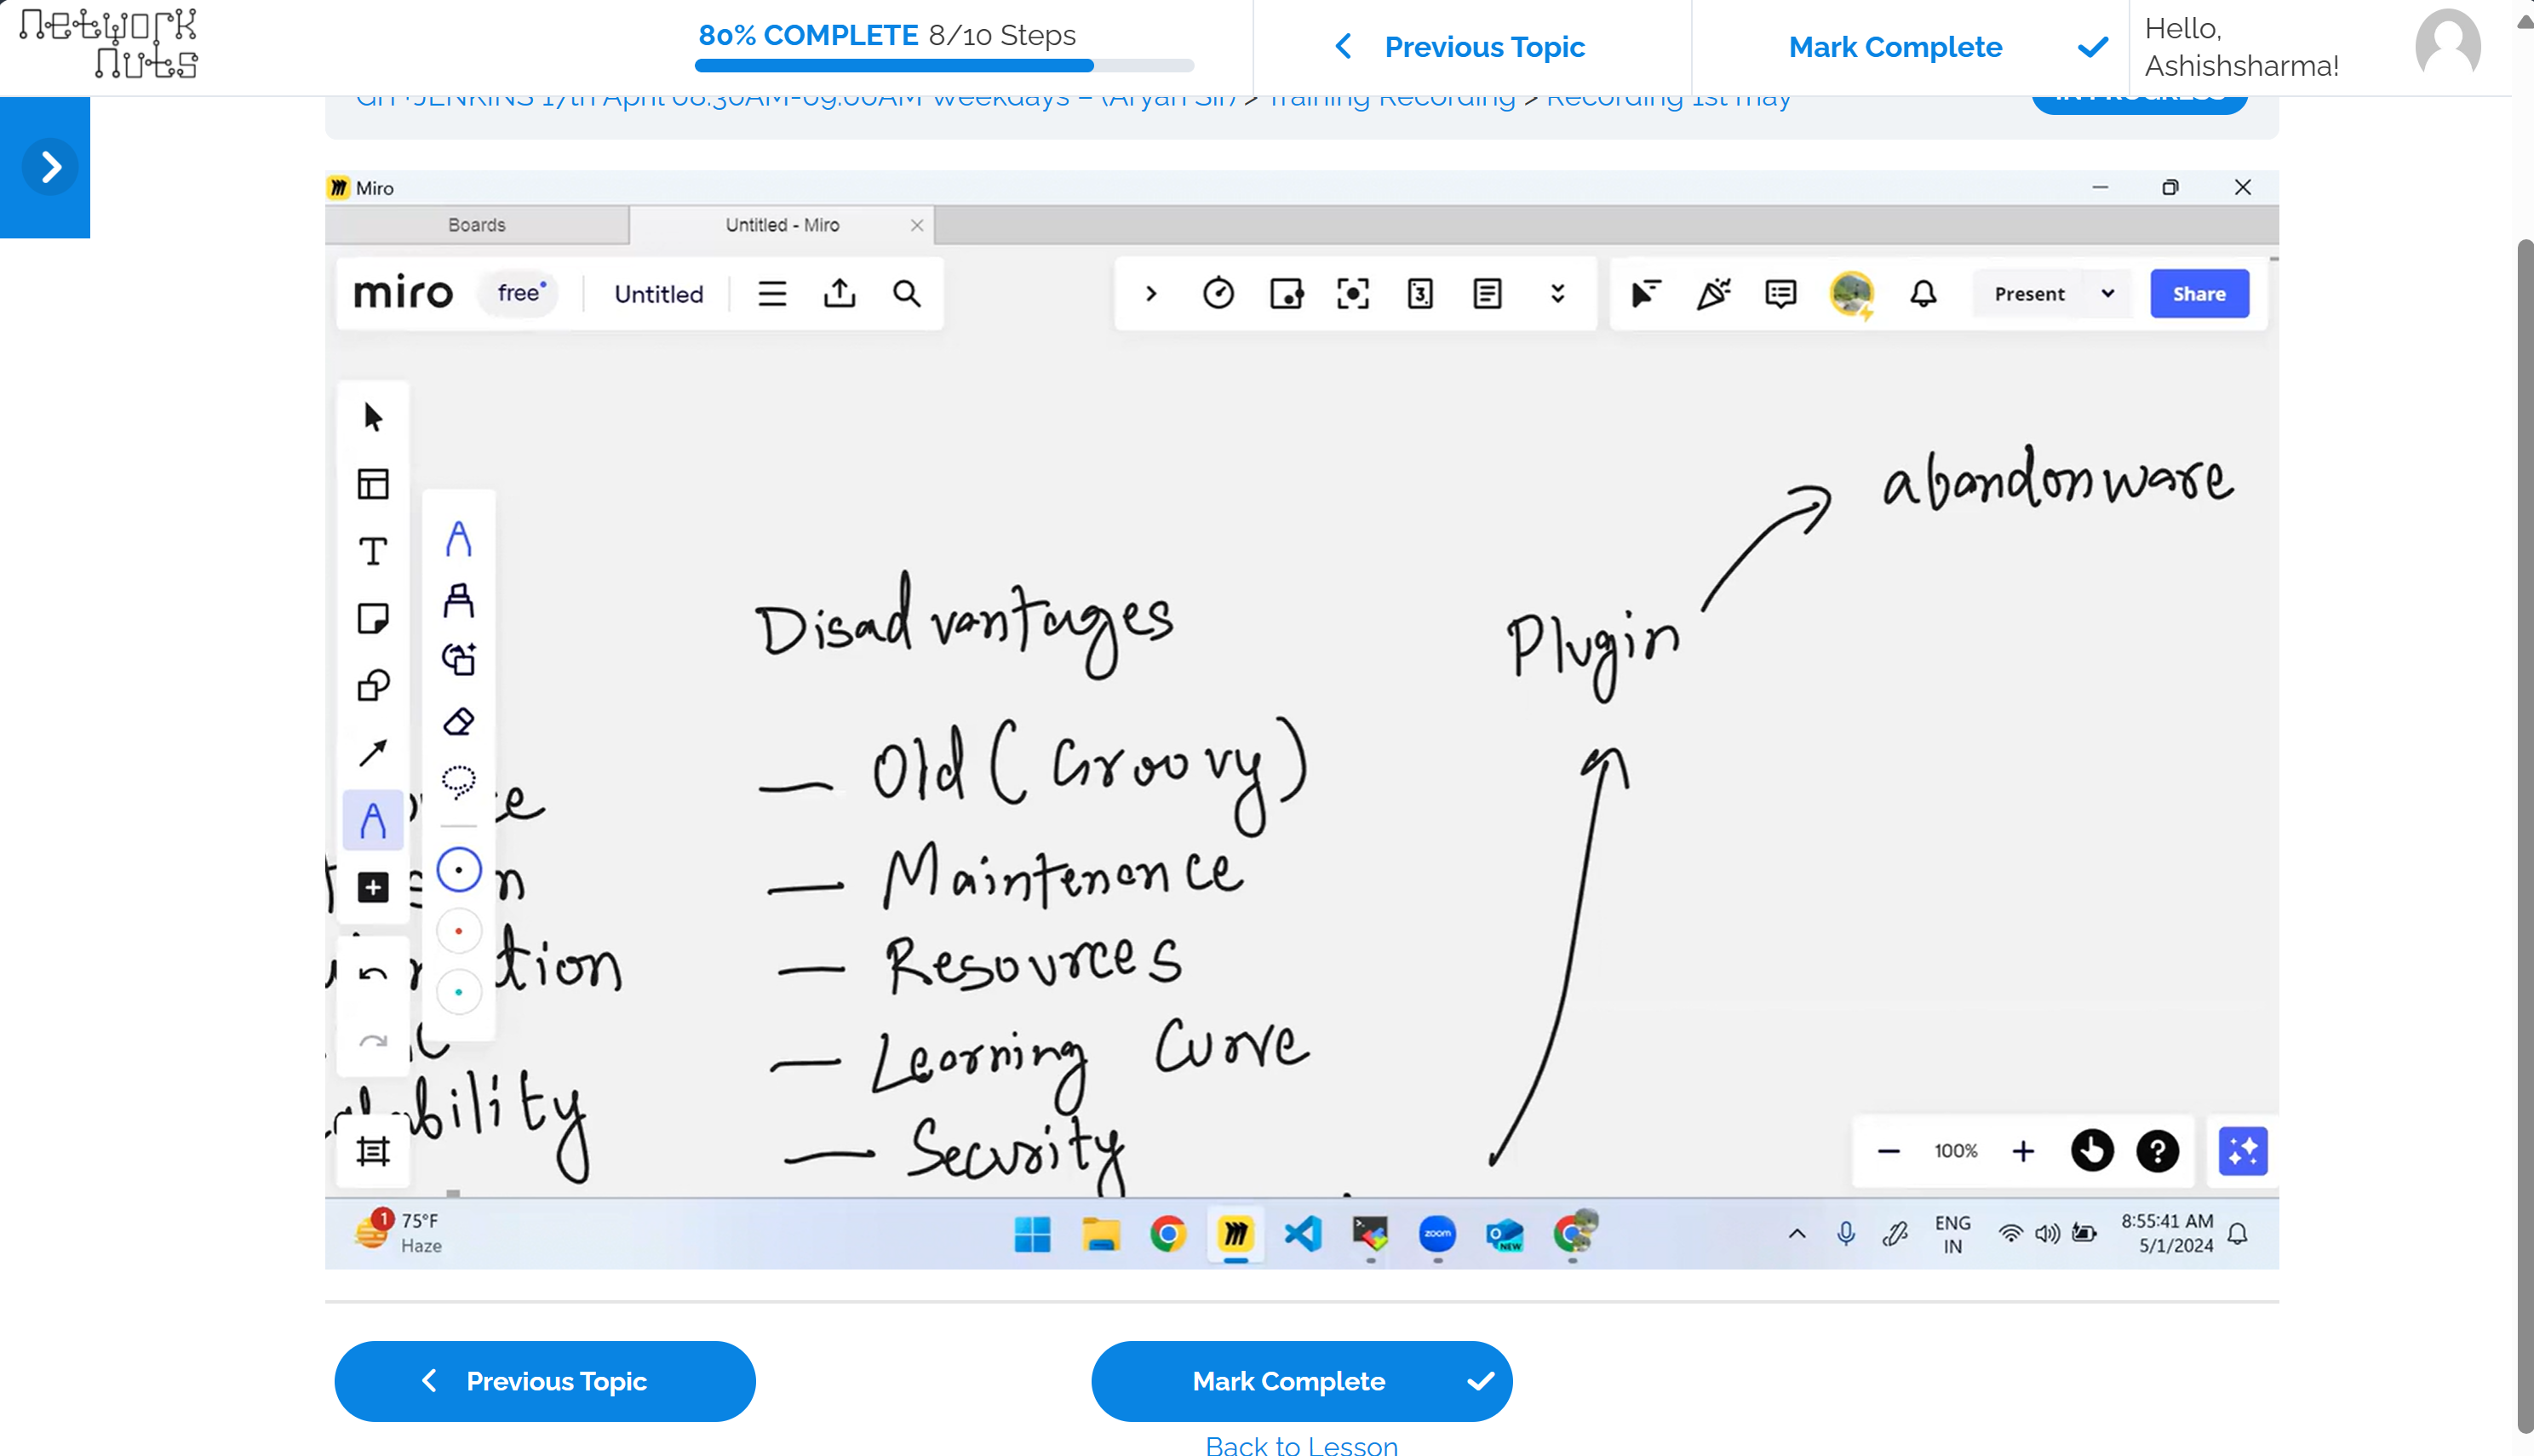 Network
Nuts
80% COMPLETE 8/10 Steps
Previous Topic
Mark Complete
Hello,
Ashishsharma!
GIT+JENKINS 17th April 08.30AM-09.00AM Weekdays – (Aryan Sir) > Training Recording > Recording 1st may
IN PROGRESS
Miro
Boards
Untitled - Miro
miro free Untitled
3
Present
Share
abandonware
Disadvantages
Plugin
— Old (Groovy)
— Maintenence
— Resources
tion
— Learning Curve
bility
— Security
100%
?
1
75°F
Haze
zoom
NEW
ENG
IN
8:55:41 AM
5/1/2024
Previous Topic
Mark Complete
Back to Lesson